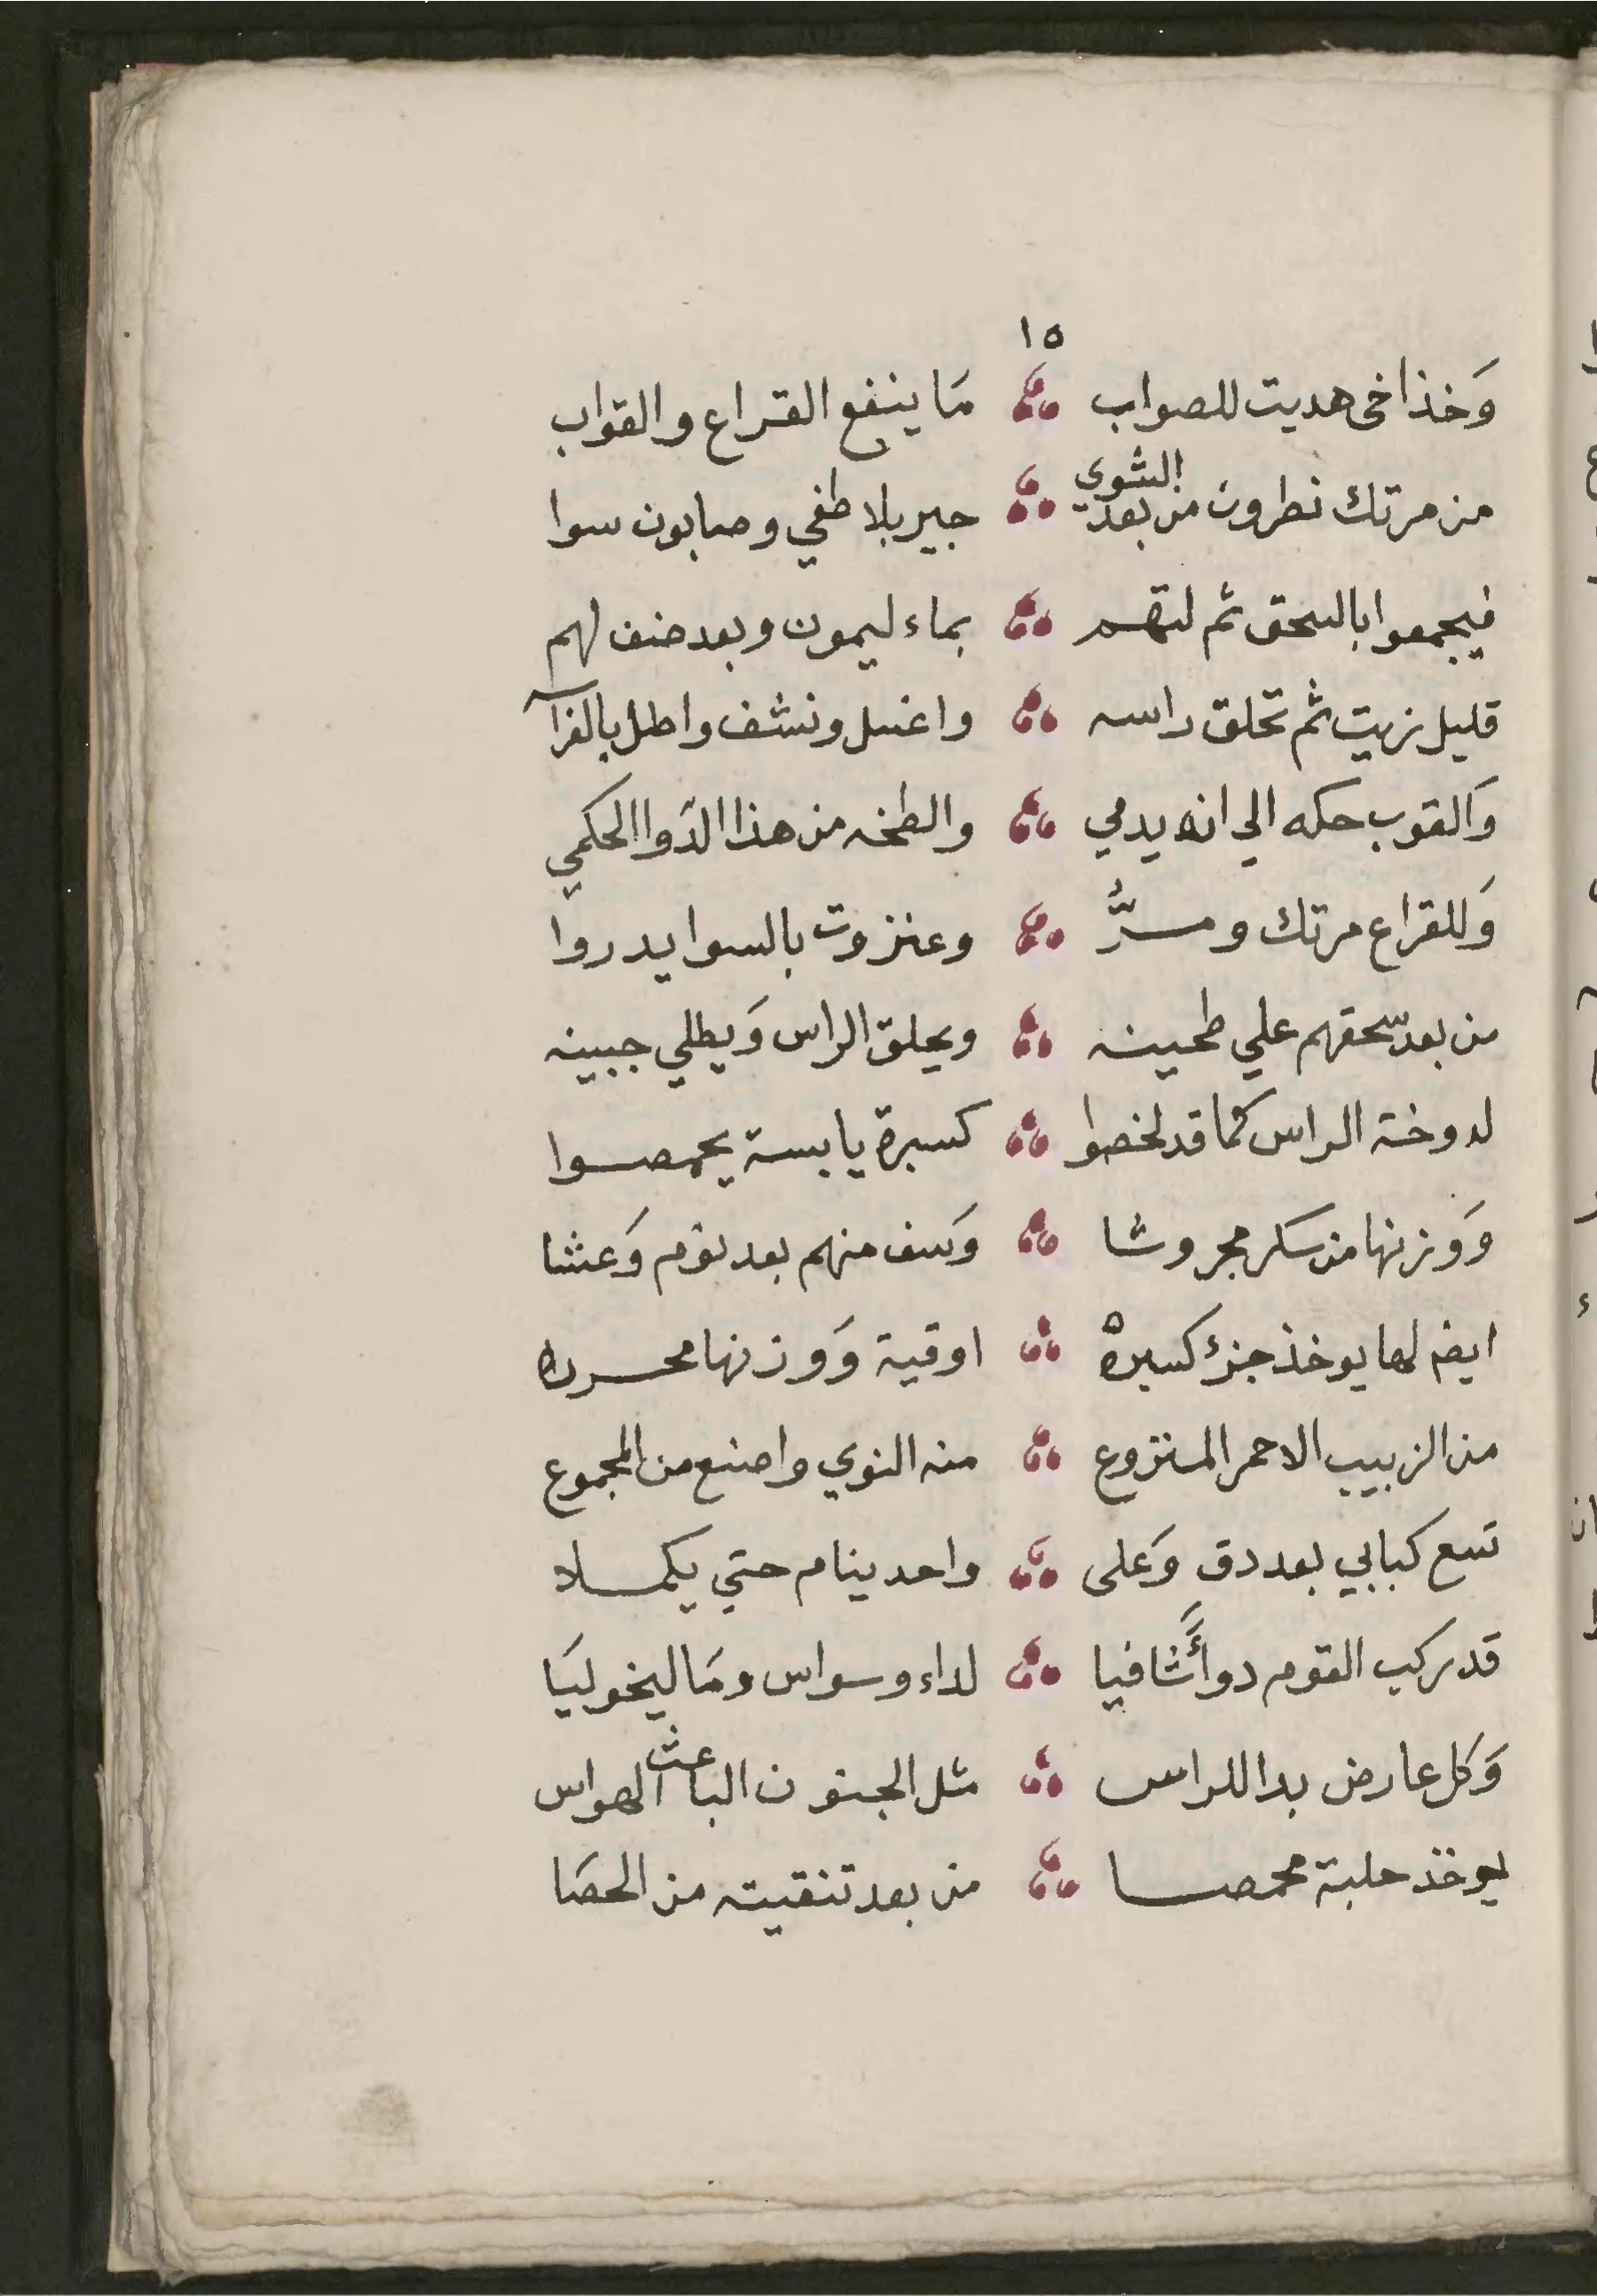 ١٥
وَخذ اخى هديت للصواب مَا ينفع القراع والقواب
من مرتك نطرون من بعد الشوي جير بلا طفي وصابون سوا
فيجمعوا بالسحق ثم لتهم بماء ليمون وبعد ضف لهم
قليل زيت ثم تحلق راسه واغسل ونشف واطل بالفرآ
وَالقوب حكه الي انه يدمي والطخه من هذا الدَوا الحكمي
وَللقراع مرتك ومرٌّ وعنزروت بالسوا يدروا
من بعد سحقهم علي طحينه ويحلق الراس وَيطلي جبينه
لدوخة الراس كما قد لخصوا كسبرة يابسة يحمصوا
وَوزنها من سكر مجروشا وَسف منهم بعد نوم وَعشا
ايضم لها يوخذ جزء كسبره اوقية وَوزنها محرره
من الزبيب الاحمر المنزوع منه النوي واصنع من المجموع
تسع كبابي بعد دق وَعلى واحد ينام حتي يكملا
قد ركب القوم دوأً شافيا لداء وسواس ومَاليخوليَا
وَكل عارض بدا للراس مثل الجنون الباعث الهواس
يوخذ حلبة محمصا من بعد تنقيته من الحصَا